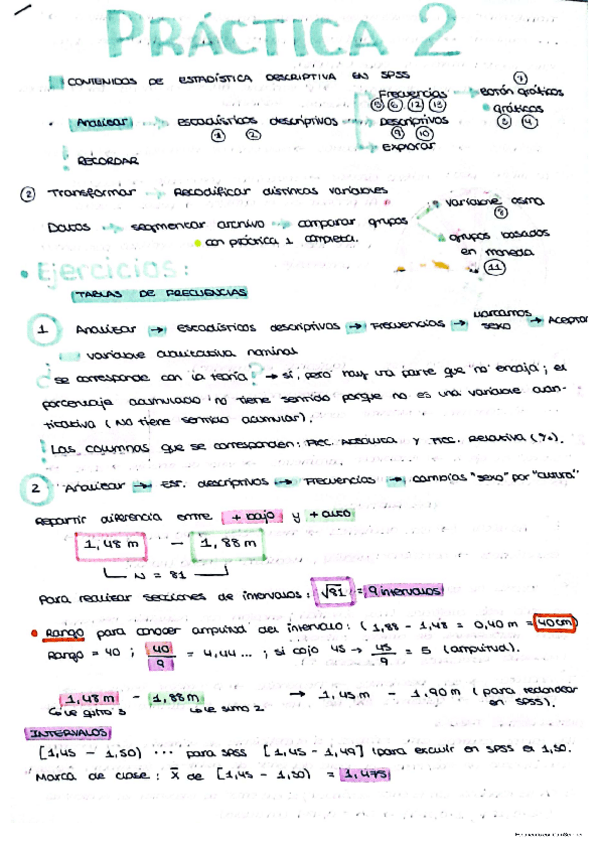 PRÁCTICA 2
CONTENIDOS DE ESTADÍSTICA DESCRIPTIVA EN SPSS
Analizar → estadísticos descriptivos → Frecuencias → botón gráficos
① ② ⑤ ⑥ ⑫ ⑬ ⑦
gráficos
③ ④
Descriptivos
⑨ ⑩
explorar
! RECORDAR
② Transformar → Recodificar distintas variables
Datos → segmentar archivo → comparar grupos → variable asma
⑧
con práctica 1 completa.
grupos basados
en moneda
⑪
• Ejercicios:
TABLAS DE FRECUENCIAS
1 Analizar → estadísticos descriptivos → Frecuencias → marcamos sexo → Aceptar
variable cualitativa nominal
¿se corresponde con la teoría? → sí, pero hay una parte que no encaja; el
porcentaje acumulado no tiene sentido porque no es una variable cuan-
titativa (No tiene sentido acumular).
! Las columnas que se corresponden: Frec. Absoluta y Frec. Relativa (%).
2 Analizar → Est. descriptivos → Frecuencias → cambias "sexo" por "altura"
Repartir diferencia entre + bajo y + alto
1,48 m - 1,88 m
N = 81
Para realizar secciones de intervalos: √81 = 9 intervalos
• Rango para conocer amplitud del intervalo: (1,88 - 1,48 = 0,40 m = 40 cm)
Rango = 40 ; 40/9 = 4,44... ; si cojo 45 → 45/9 = 5 (amplitud).
1,48 m - 1,88 m → 1,45 m - 1,90 m (para redondear
en SPSS).
le quito 3 le sumo 2
INTERVALOS
[1,45 - 1,50) ... para SPSS [1,45 - 1,49] (para excluir en SPSS el 1,50.
Marca de clase: x̄ de [1,45 - 1,50) = 1,475